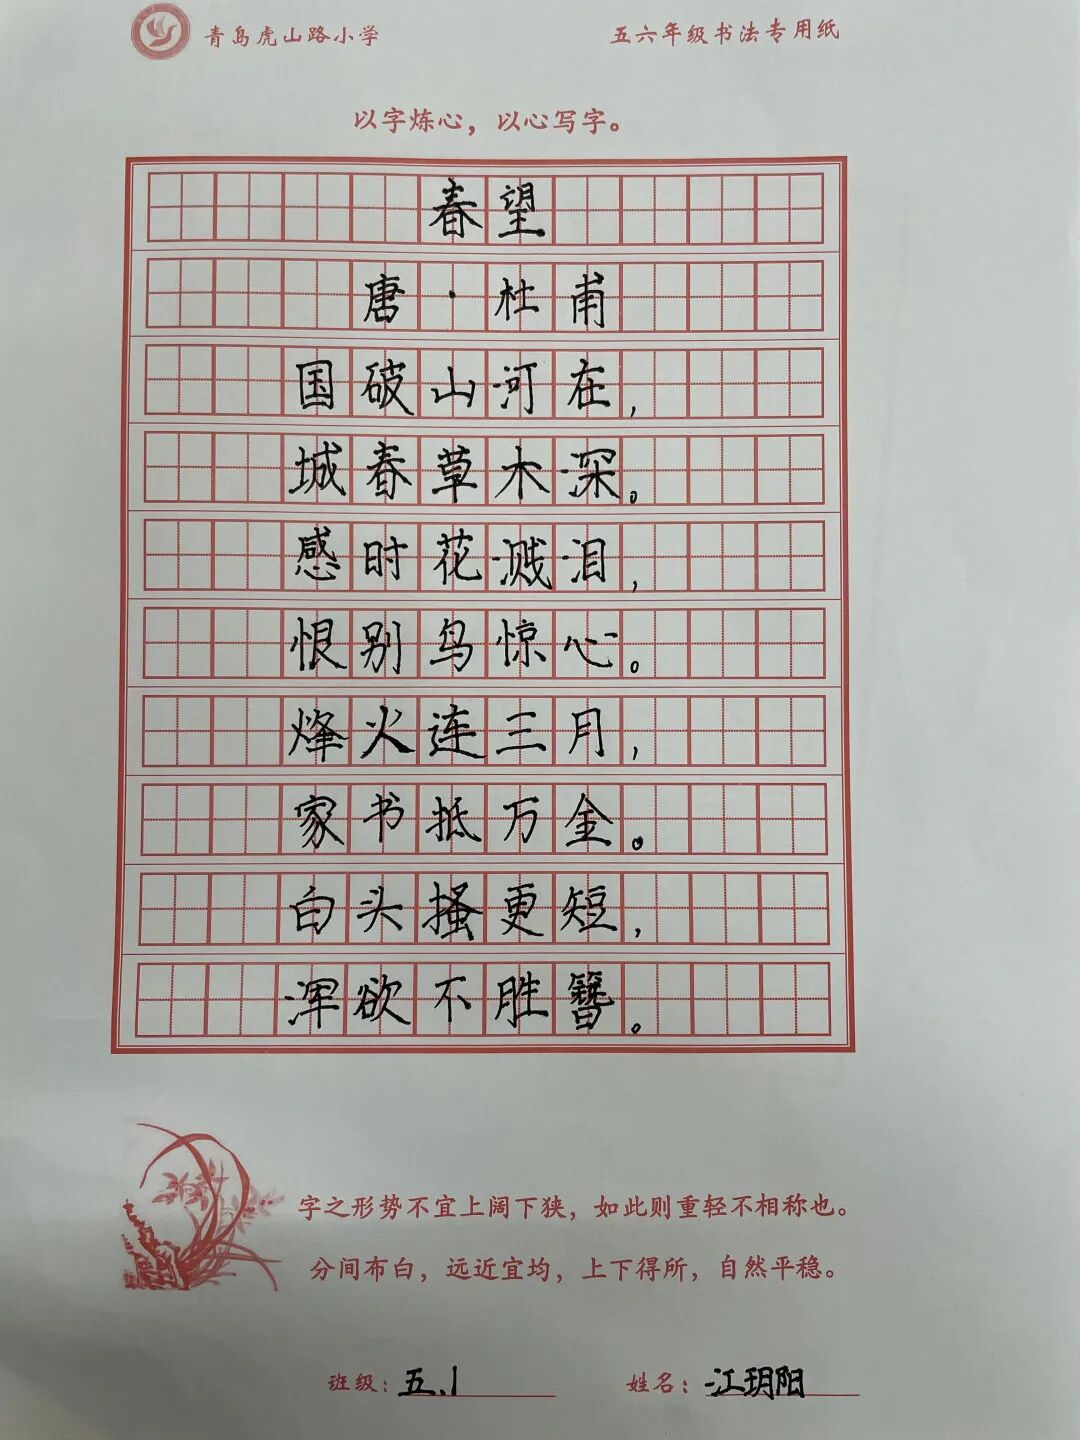 青岛虎山路小学
五六年级书法专用纸
以字炼心，以心写字。
春望
唐·杜甫
国破山河在，
城春草木深。
感时花溅泪，
恨别鸟惊心。
烽火连三月，
家书抵万金。
白头搔更短，
浑欲不胜簪。
字之形势不宜上阔下狭，如此则重轻不相称也。
分间布白，远近宜均，上下得所，自然平稳。
班级：五.1
姓名：江玥阳